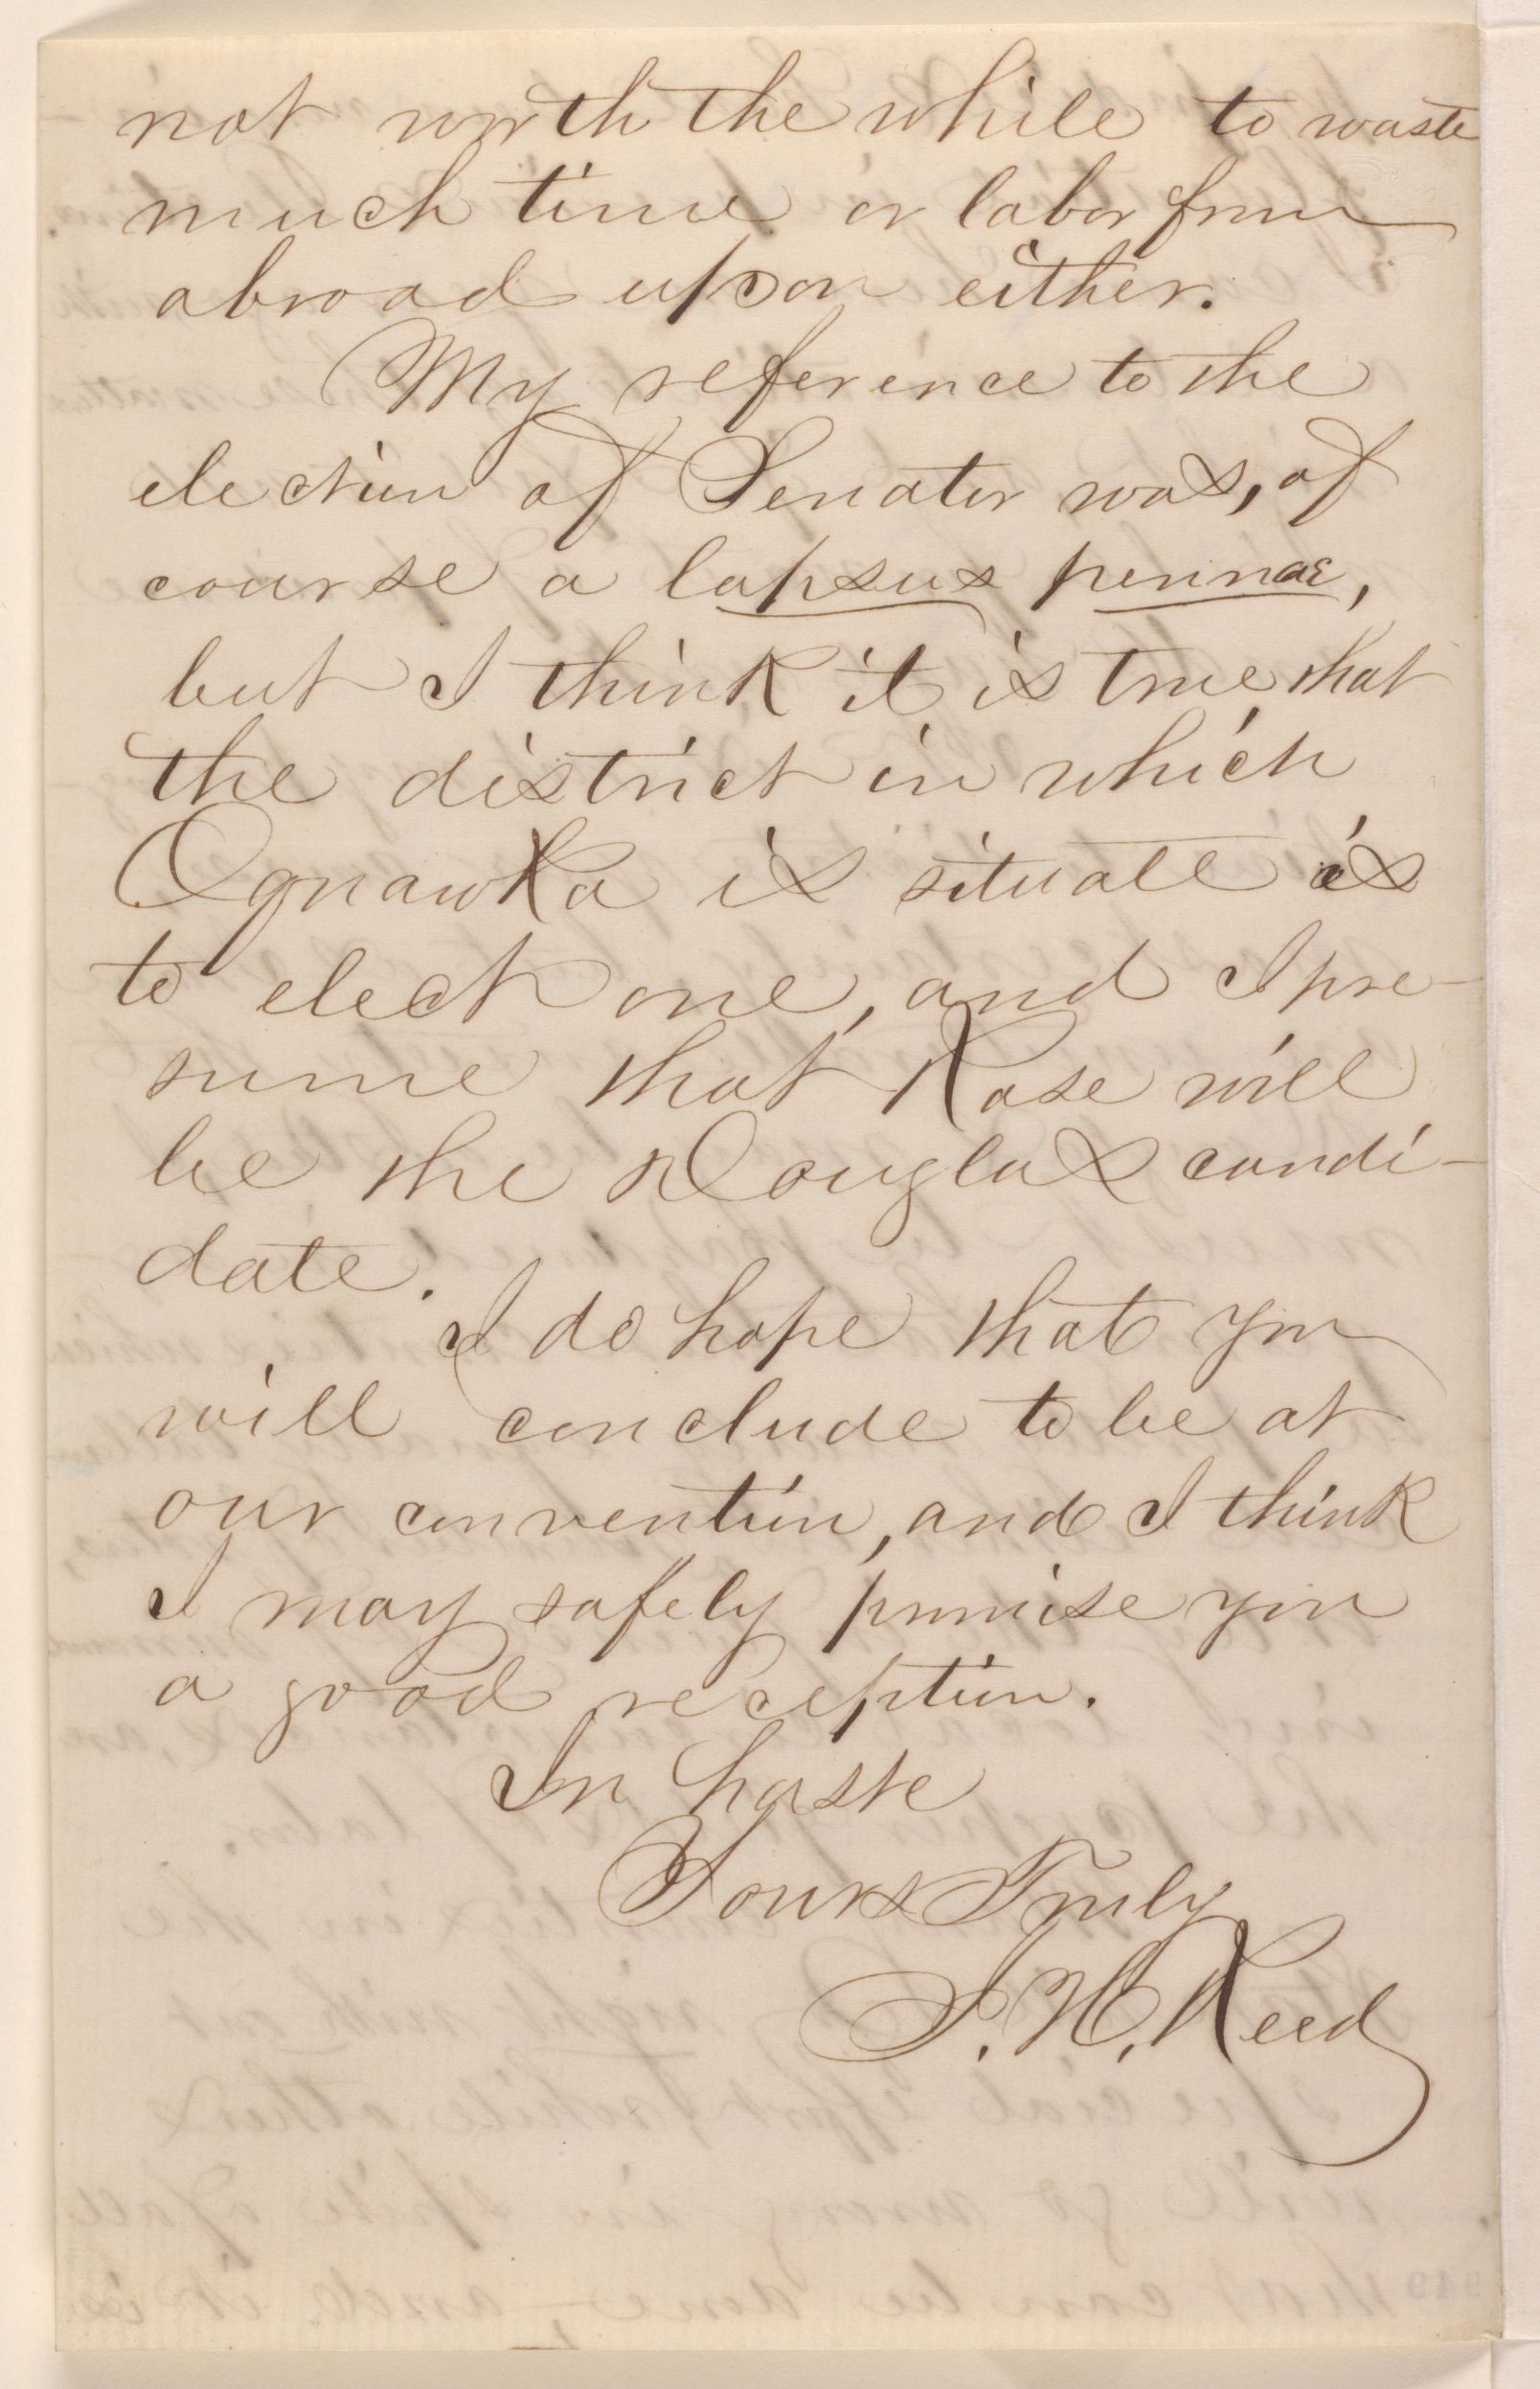 not worth the while to waste
much time or labor from
abroad upon either.
My reference to the
election of Senator was, of
course a lapsus pennae,
but I think it is true, that
the district in which
Oqnawka is situate is
to elect one, and I pre-
sume that Rose will
be the Douglas candi-
date.
I do hope that you
will conclude to be at
our convention, and I think
I may safely promise you
a good reception.
In haste
Yours Truly
J. H. Reed